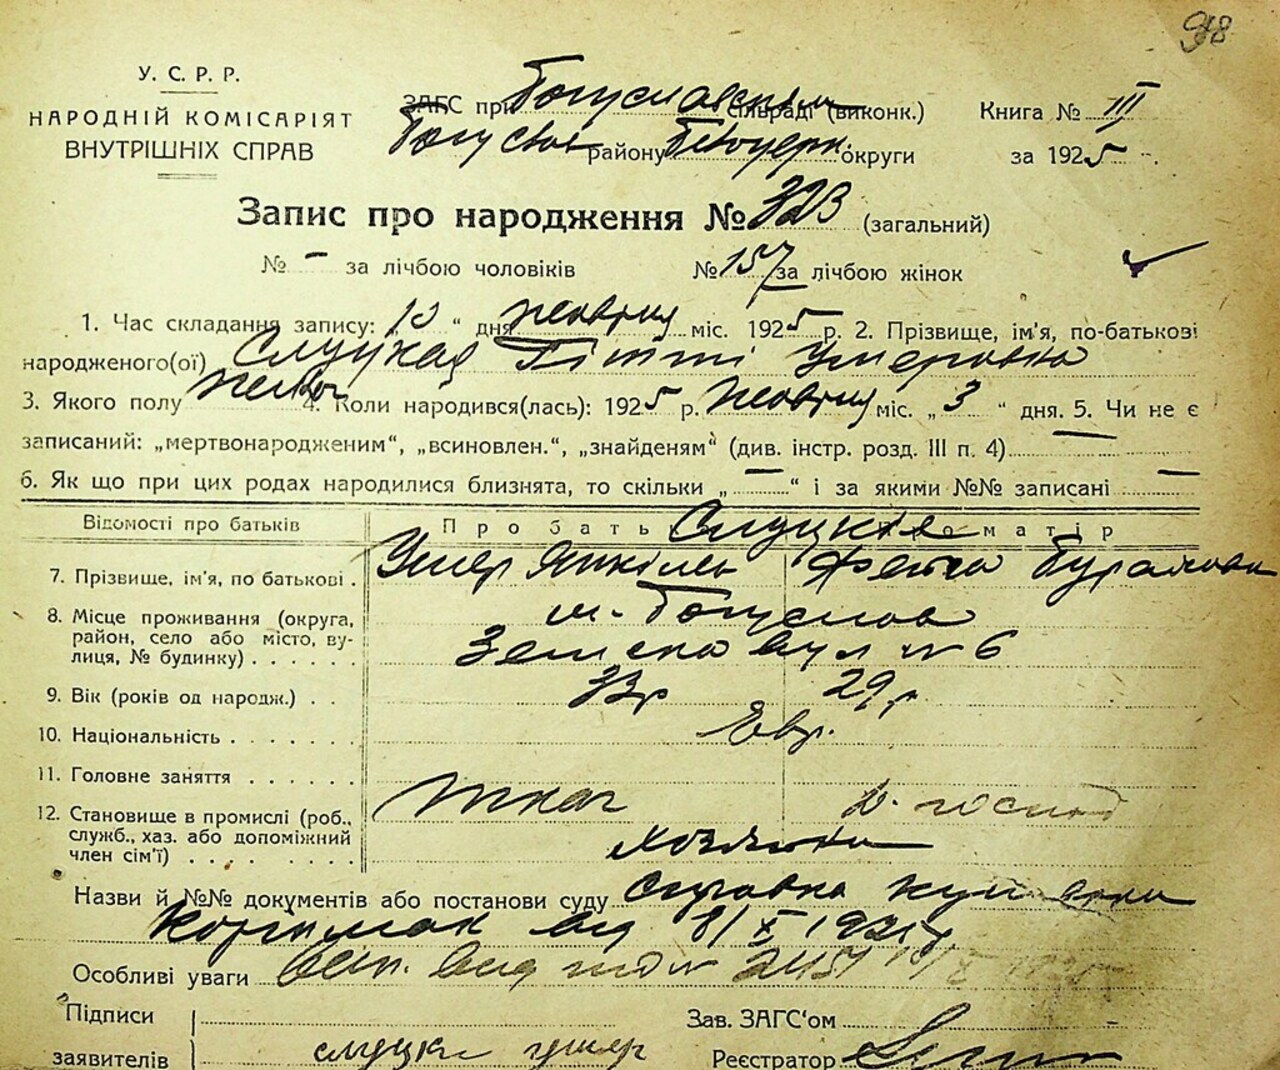 98
У. С. Р. Р.
НАРОДНІЙ КОМІСАРІЯТ
ВНУТРІШНІХ СПРАВ
ЗАГС при Богуславським сільраді (виконк.) Книга № III
району Білоцерк. округи за 1925
Запис про народження № 323 (загальний)
№ - за лічбою чоловіків № 157 за лічбою жінок
1. Час складання запису: „10“ дня жовтня міс. 1925 р. 2. Прізвище, ім'я, по-батькові
народженого(ої) Слуцкая Умеровна
3. Якого полу жіноч 4. Коли народився(лась): 1925 р. жовтня міс. „3“ дня. 5. Чи не є
записаний: „мертвонародженим“, „всиновлен.“, „знайденям“ (див. інстр. розд. III п. 4) —
6. Як що при цих родах народилися близнята, то скільки „—“ і за якими №№ записані —
Відомості про батьків Про батьк Слуцкие матір
7. Прізвище, ім'я, по батькові . Янкілев
8. Місце проживання (округа, м. Богуслав
район, село або місто, ву- Земска вул № 6
лиця, № будинку) . . . . . .
9. Вік (років од народж.) . . 33 р 29 р
10. Національність . . . . . . . Євр.
11. Головне заняття . . . . . .
12. Становище в промислі (роб., ткач д. господ
служб., хаз. або допоміжний хозяина
член сім'ї) . . . . . . .
Назви й №№ документів або постанови суду справка
від 8/X 192
Особливі уваги вип. вид 2451
Підписи Зав. ЗАГС'ом
заявителів слуцки Реєстратор